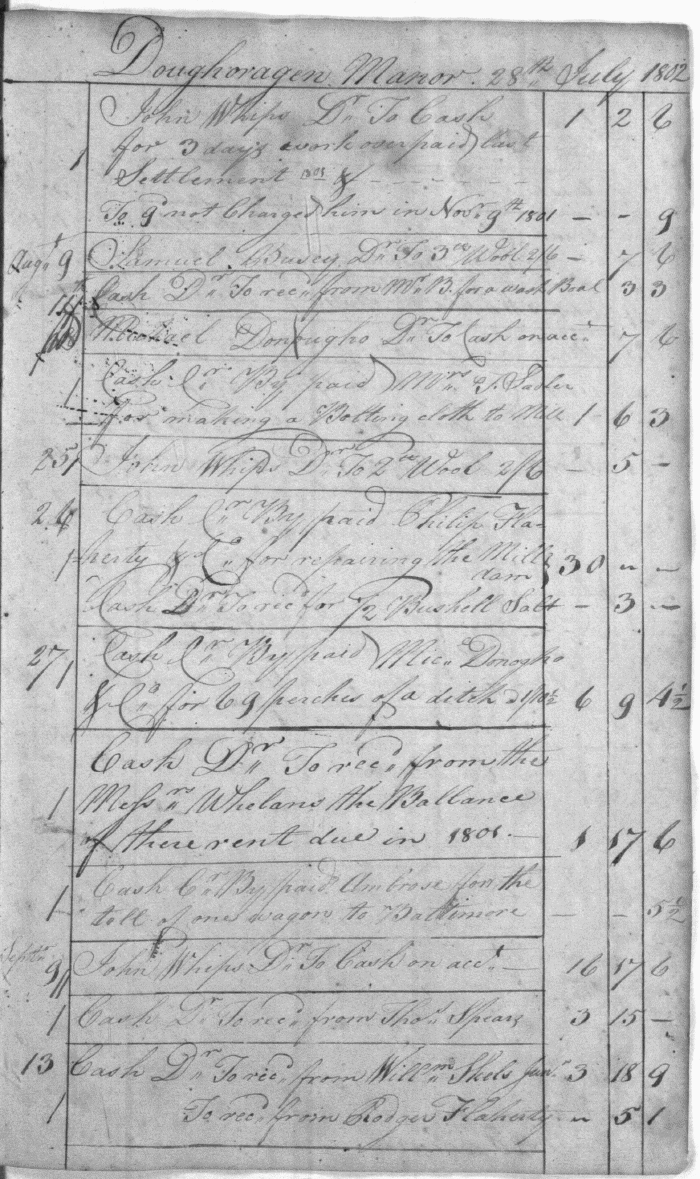 Doughoragen Manor. 28th July 1802
John Whips Dr To Cash 1 2 6
for 3 days work overpaid) last
1 Settlement 1801 &
To 9 not Charged him in Novr 9th 1801 - - 9
Augt 9 Samuel Dr To 3 Wool 2/6 - 7 6
Cash Dr To recd from Mr B. for a 3 3
Michael Donougho Dr To Cash on acct 7 6
Cash Cr By paid) Mrs
1 for making a Bolting cloth to Mill 1 6 3
25 John Whips Dr To 2 Wool 2/6 - 5 -
26 Cash Cr By paid Philip Fla-
1 herty & Co for repairing the Mill
dam } 30 - -
Cash Dr To recd for 1/2 Bushell Salt - 3 -
27 Cash Cr By paid) Micl Donogho
1 & Co for 69 perches of a ditch @ 1/10½ 6 9 4½
Cash Dr To recd from the
1 Messrs Whelans the Ballance
of there rent due in 1801. - 1 17 6
Cash Cr By paid Ambrose for the
1 toll of one wagon to Baltimore - - 5½
Septr
9 John Whips Dr To Cash on acct - 16 17 6
1 Cash Dr To recd from Thos Spears 3 15 -
13 Cash Dr To recd from Willm Shels Junr 3 18 9
1 To recd from Rodger Flaherty - 5 1